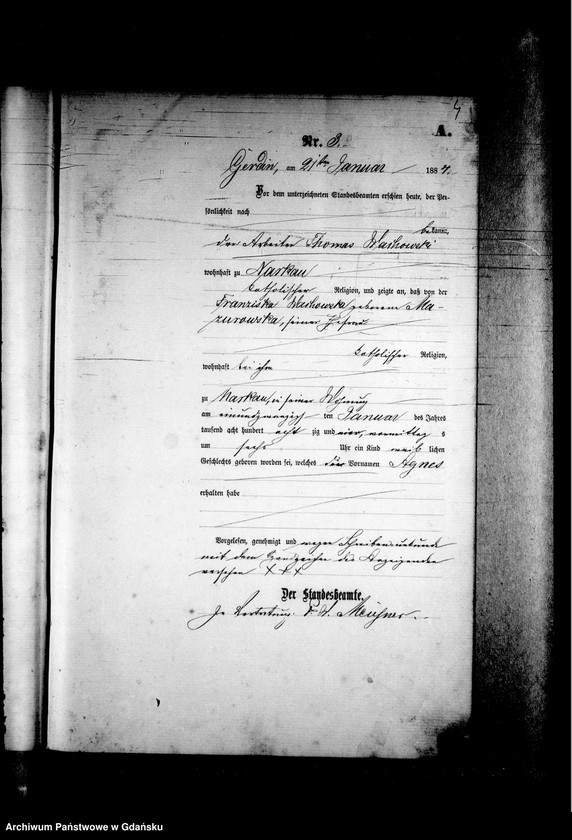 4
A.
Nr. 3.
Gerdin, am 21ten Januar 1884.
Vor dem unterzeichneten Standesbeamten erschien heute, der Per-
sönlichkeit nach
bekannt,
der Arbeiter Thomas Wachowski
wohnhaft zu Narkau
katholischer Religion, und zeigte an, daß von der
Franziska Wachowska geborene Ma-
zurowska, seiner Ehefrau
katholischer Religion,
wohnhaft bei ihm
zu Narkau, in seiner Wohnung
am einundzwanzigsten den Januar des Jahres
tausend acht hundert achtzig und vier, vormittags
um sechs Uhr ein Kind weiblichen
Geschlechts geboren worden sei, welches den Vornamen Agnes
erhalten habe
Vorgelesen, genehmigt und wegen Schreibensunkunde
mit dem Handzeichen des Anzeigenden
versehen + + +
Der Standesbeamte.
In Vertretung: Meißner.
Archiwum Państwowe w Gdańsku